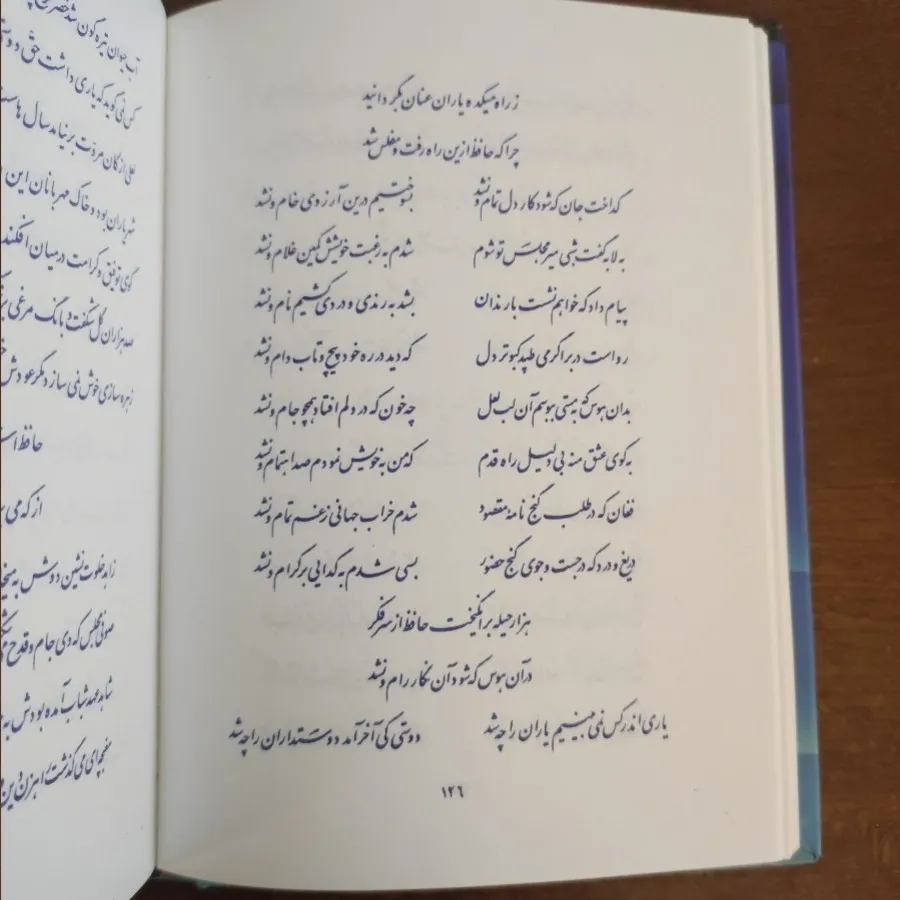 ز راه میکده یاران عنان بگردانید
چرا که حافظ ازین راه رفت و مفلس شد
گداخت جان که شود کار دل تمام و نشد بسوختیم درین آرزوی خام و نشد
به لابه گفت شبی میر مجلس تو شوم شدم به رغبت خویشش کمین غلام و نشد
پیام داد که خواهم نشست با رندان بشد به رندی و دردی کشیم نام و نشد
رواست در بر اگر می طپد کبوتر دل که دید در ره خود پیچ و تاب دام و نشد
بدان هوس که به مستی ببوسم آن لب لعل چه خون که در دلم افتاد همچو جام و نشد
به کوی عشق منه بی دلیل راه قدم که من به خویش نمودم صد اهتمام و نشد
فغان که در طلب گنج نامهٔ مقصود شدم خراب جهانی ز غم تمام و نشد
دریغ و درد که در جست و جوی گنج حضور بسی شدم به گدایی بر کرام و نشد
هزار حیله برانگیخت حافظ از سر فکر
در آن هوس که شود آن نگار رام و نشد
یاری اندر کس نمی بینیم یاران را چه شد دوستی کی آخر آمد دوستداران را چه شد
۱۲۶
آب حیوان تیره گون شد خضر
کس نمی گوید که یاری داشت حق دوستی
لعلی از کان مروت بر نیامد سال هاست
شهر یاران بود و خاک مهربانان این
گوی توفیق و کرامت در میان افکنده
صد هزاران گل شکفت و بانگ مرغی بر
زهره سازی خوش نمی سازد مگر عودش
حافظ اسرار
از که می
زاهد خلوت نشین دوش به میخانه
صوفی مجلس که دی جام و قدح می
شاهد عهد شباب آمده بودش به
مغبچه ای می گذشت راهزن دین و